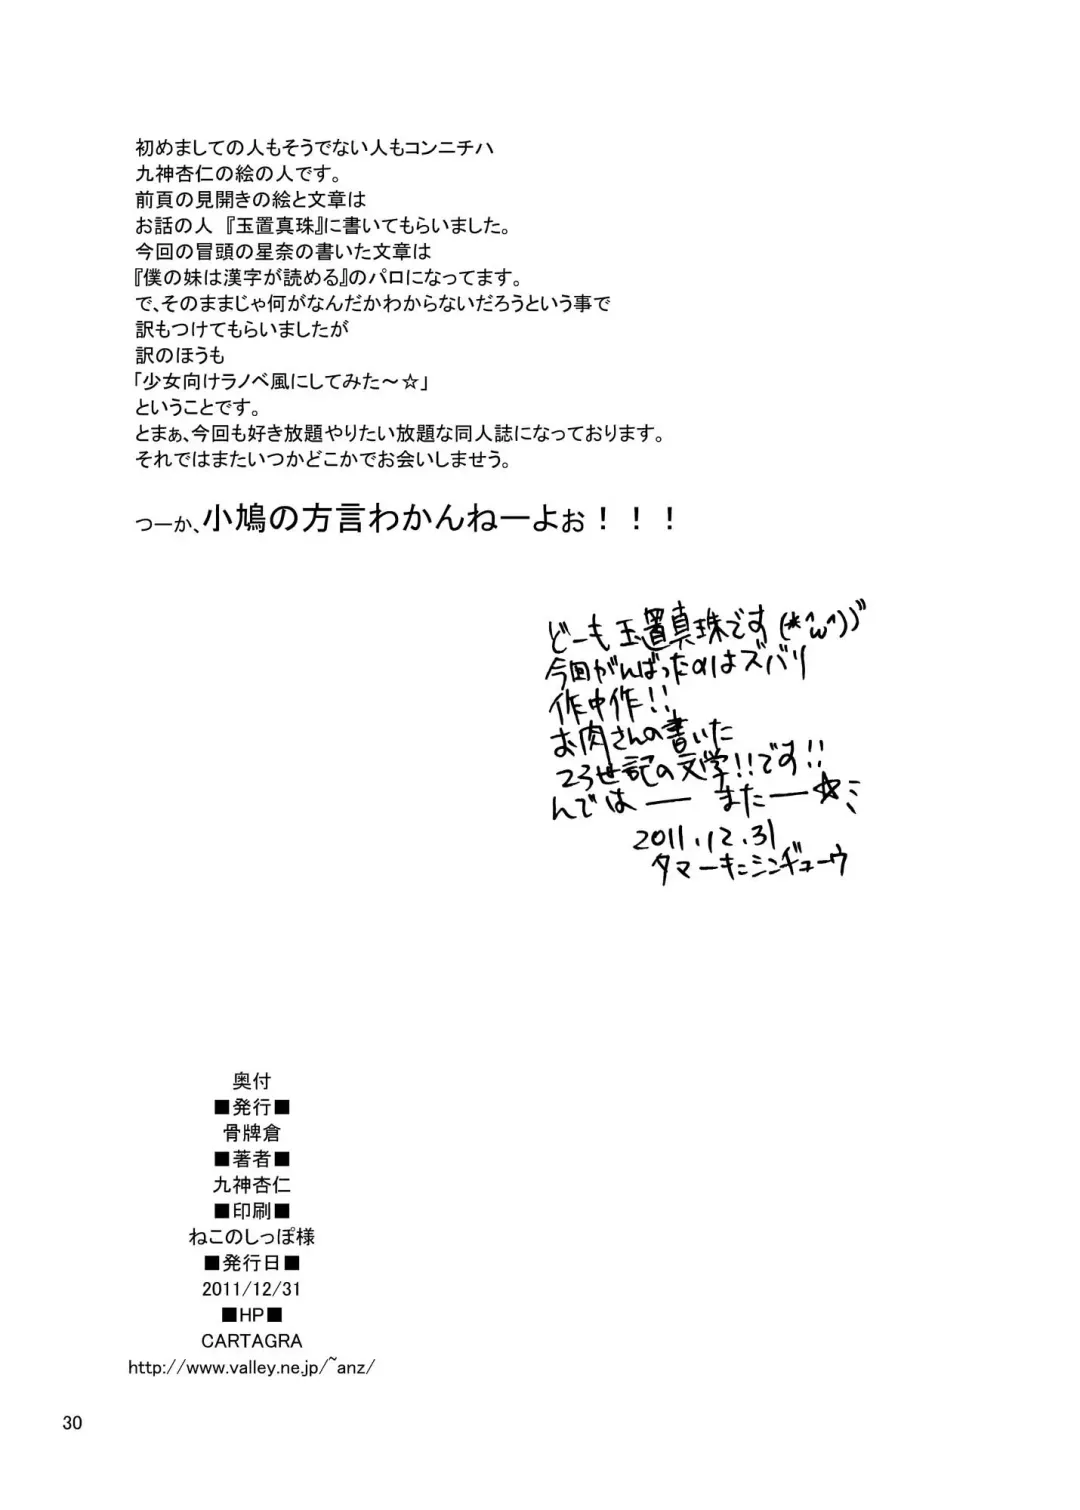 初めましての人もそうでない人もコンニチハ
九神杏仁の絵の人です。
前頁の見開きの絵と文章は
お話の人 『玉置真珠』に書いてもらいました。
今回の冒頭の星奈の書いた文章は
『僕の妹は漢字が読める』のパロになってます。
で、そのままじゃ何がなんだかわからないだろうという事で
訳もつけてもらいましたが
訳のほうも
「少女向けラノベ風にしてみた～☆」
ということです。
とまぁ、今回も好き放題やりたい放題な同人誌になっております。
それではまたいつかどこかでお会いしませう。
つーか、小鳩の方言わかんねーよぉ！！！
どーも玉置真珠です(*^ω^)ﾞ
今回がんばったのはズバリ
作中作!!
お肉さんの書いた
23世記の文学!!です!!
んでは── また──☆ミ
2011.12.31
タマーキニシンヂューウ
奥付
■発行■
骨牌倉
■著者■
九神杏仁
■印刷■
ねこのしっぽ様
■発行日■
2011/12/31
■HP■
CARTAGRA
http://www.valley.ne.jp/~anz/
30